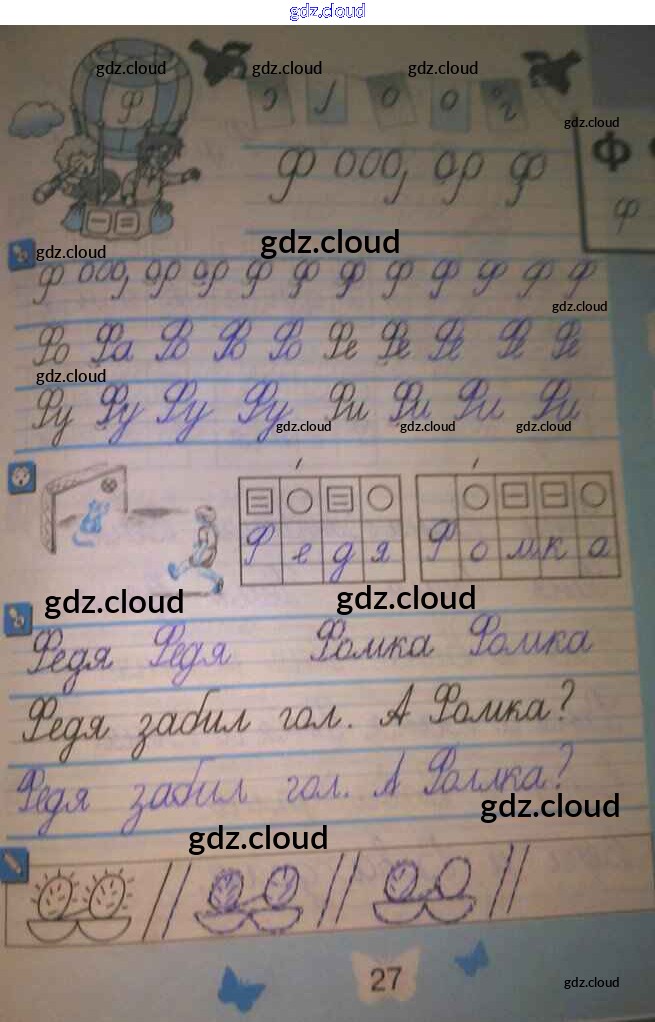 gdz.cloud
gdz.cloud gdz.cloud gdz.cloud
ф
gdz.cloud
Ф
ф ооо, ор ф
ф
gdz.cloud gdz.cloud
ф ооо, ор ор ф ф ф ф ф ф ф ф
gdz.cloud
Фо Фа Фо Фо Фо Фе Фе Фе Фе Фе
gdz.cloud
Фу Фу Фу Фу Фи Фи Фи Фи
gdz.cloud gdz.cloud gdz.cloud
Ф е д я Ф о м к а
gdz.cloud gdz.cloud
Федя Федя Фомка Фомка
Федя забил гол. А Фомка?
Федя забил гол. А Фомка?
gdz.cloud
gdz.cloud
27
gdz.cloud